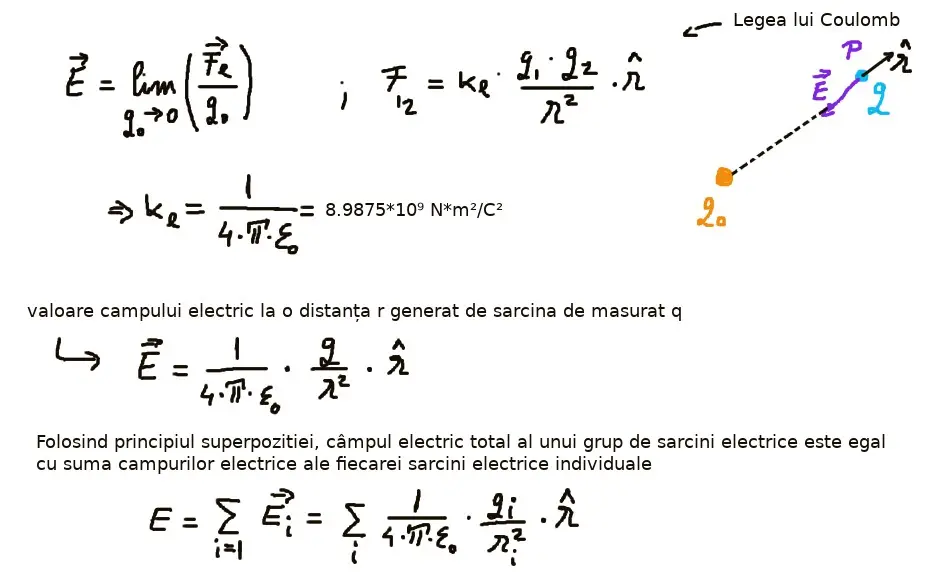 Legea lui Coulomb
E⃗ = lim q₀→0 (F⃗e/q₀) ; F₁₂ = ke · q₁·q₂/r² · r̂
P r̂
E⃗ q
q₀
⇒ ke = 1/4·π·ε₀ = 8.9875*10⁹ N*m²/C²
valoare campului electric la o distanța r generat de sarcina de masurat q
E⃗ = 1/4·π·ε₀ · q/r² · r̂
Folosind principiul superpozitiei, câmpul electric total al unui grup de sarcini electrice este egal
cu suma campurilor electrice ale fiecarei sarcini electrice individuale
E = ∑ i=1 E⃗i = ∑ i 1/4·π·ε₀ · qi/ri² · r̂